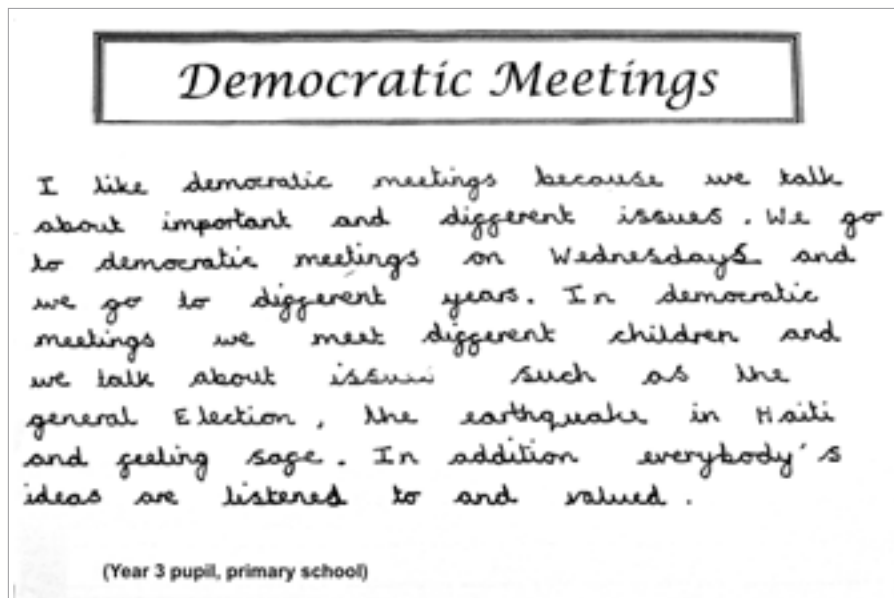 Democratic Meetings
I like democratic meetings because we talk
about important and different issues. We go
to democratic meetings on Wednesdays and
we go to different years. In democratic
meetings we meet different children and
we talk about issues such as the
general Election, the earthquake in Haiti
and feeling safe. In addition everybody's
ideas are listened to and valued.
(Year 3 pupil, primary school)